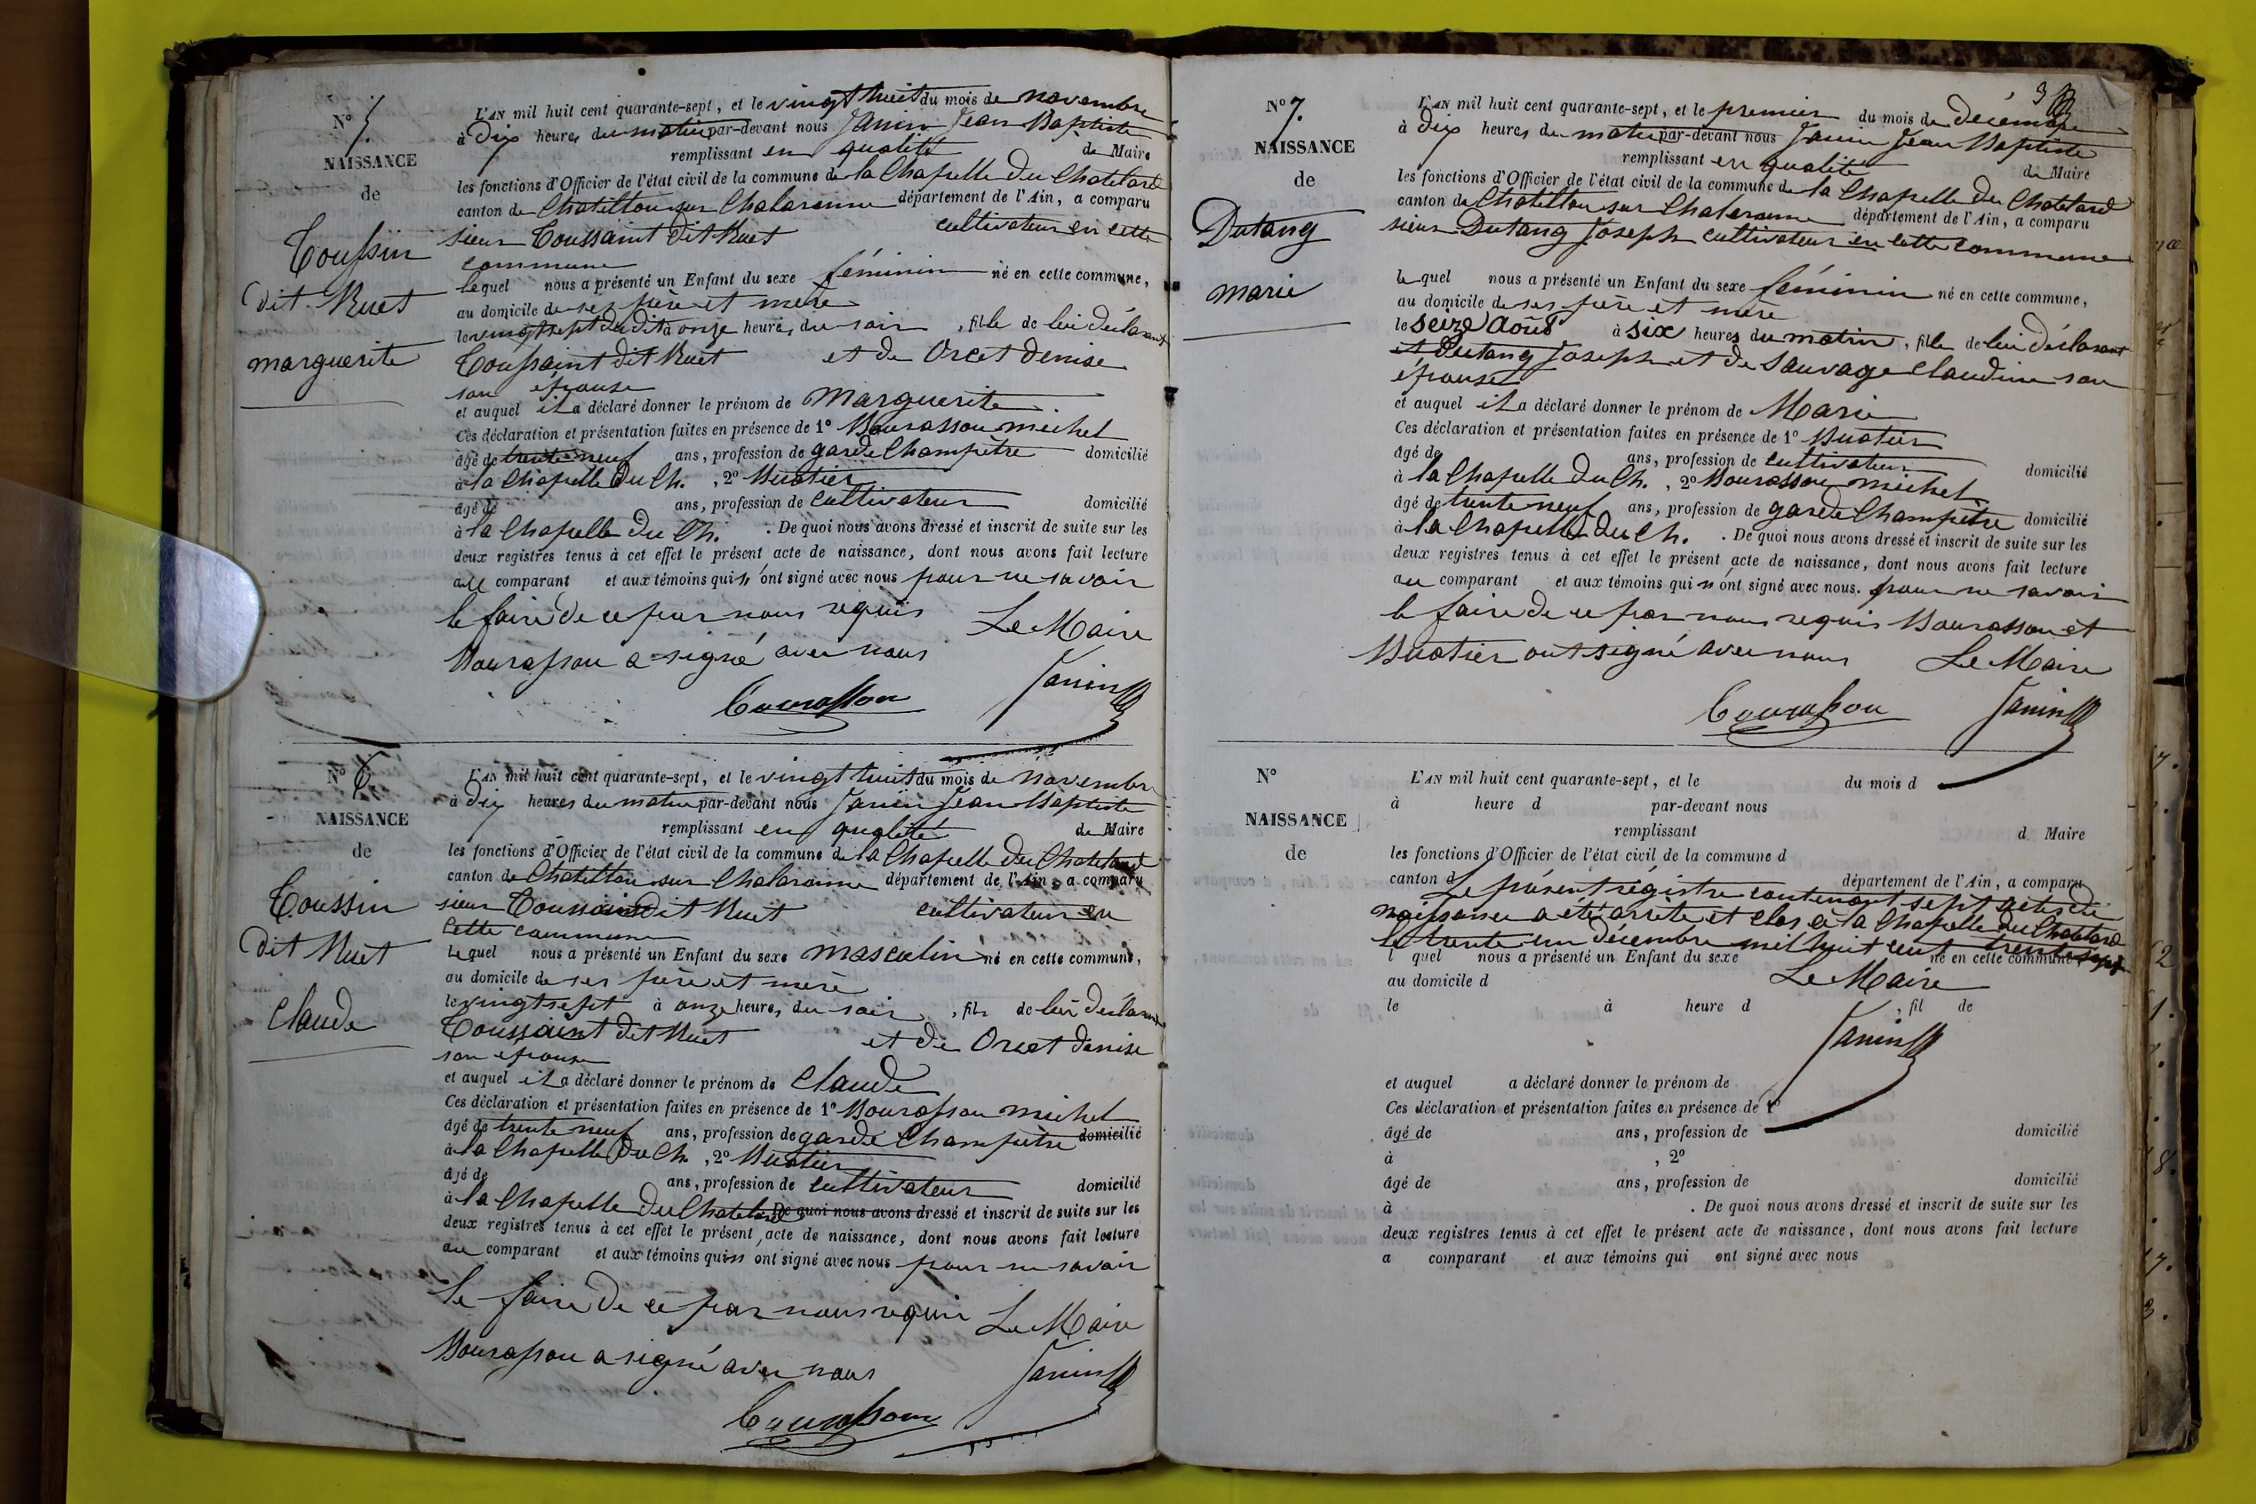 N° 5.
NAISSANCE
de
Toussin
dit Ruet
marguerite
L'AN mil huit cent quarante-sept, et le vingt huit du mois de novembre
à dix heures du matin par-devant nous Janin Jean Baptiste
remplissant en qualité de Maire
les fonctions d'Officier de l'état civil de la commune de la Chapelle du Chatelard
canton de Chatillon sur Chalaronne département de l'Ain, a comparu
sieur Toussaint dit Ruet cultivateur en cette
commune
lequel nous a présenté un Enfant du sexe féminin né en cette commune,
au domicile de ses père et mère
le vingt sept du dit à onze heures du soir, fille de lui déclarant
Toussaint dit Ruet et de Orcet denise
son épouse
et auquel il a déclaré donner le prénom de Marguerite
Ces déclaration et présentation faites en présence de 1° Bourassou michel
âgé de trente neuf ans, profession de garde Champêtre domicilié
à la Chapelle du Ch. , 2° Buatier
âgé de ans, profession de cultivateur domicilié
à la Chapelle du Ch. . De quoi nous avons dressé et inscrit de suite sur les
deux registres tenus à cet effet le présent acte de naissance, dont nous avons fait lecture
au comparant et aux témoins qui n'ont signé avec nous pour ne savoir
le faire de ce par nous requis Le Maire
Bourassou a signé avec nous
Bourassou Janin
N° 6
NAISSANCE
de
Toussin
dit Ruet
Claude
L'AN mil huit cent quarante-sept, et le vingt huit du mois de Novembre
à dix heures du matin par-devant nous Janin Jean Baptiste
remplissant en qualité de Maire
les fonctions d'Officier de l'état civil de la commune de la Chapelle du Chatelard
canton de Chatillon sur Chalaronne département de l'Ain, a comparu
sieur Toussaint dit Ruet cultivateur en
cette commune
lequel nous a présenté un Enfant du sexe masculin né en cette commune,
au domicile de ses père et mère
le vingt sept à onze heures du soir, fils de lui déclarant
Toussaint dit Ruet et de Orcet denise
son épouse
et auquel il a déclaré donner le prénom de Claude
Ces déclaration et présentation faites en présence de 1° Bourassou michel
âgé de trente neuf ans, profession de garde Champêtre domicilié
à la Chapelle du Ch. , 2° Buatier
âgé de ans, profession de cultivateur domicilié
à la Chapelle du Chatelard De quoi nous avons dressé et inscrit de suite sur les
deux registres tenus à cet effet le présent acte de naissance, dont nous avons fait lecture
au comparant et aux témoins qui n ont signé avec nous pour ne savoir
le faire de ce par nous requis Le Maire
Bourassou a signé avec nous
Bourassou Janin
3
N° 7.
NAISSANCE
de
Dutang
marie
L'AN mil huit cent quarante-sept, et le premier du mois de décembre
à dix heures du matin par-devant nous Janin Jean Baptiste
remplissant en qualité de Maire
les fonctions d'Officier de l'état civil de la commune de la Chapelle du Chatelard
canton de Chatillon sur Chalaronne département de l'Ain, a comparu
sieur Dutang Joseph cultivateur en cette commune
lequel nous a présenté un Enfant du sexe féminin né en cette commune,
au domicile de ses père et mère
le seize août à six heures du matin, fille de lui déclarant
et Dutang Joseph et de Sauvage Claudine son
épouse
et auquel il a déclaré donner le prénom de Marie
Ces déclaration et présentation faites en présence de 1° Buatier
âgé de ans, profession de cultivateur domicilié
à la Chapelle du Ch. , 2° Bourassou michel
âgé de trente neuf ans, profession de garde Champêtre domicilié
à la Chapelle du Ch. . De quoi nous avons dressé et inscrit de suite sur les
deux registres tenus à cet effet le présent acte de naissance, dont nous avons fait lecture
au comparant et aux témoins qui n'ont signé avec nous. pour ne savoir
le faire de ce par nous requis Bourassou et
Buatier ont signé avec nous Le Maire
Bourassou Janin
N°
NAISSANCE
de
L'AN mil huit cent quarante-sept, et le du mois d
à heure d par-devant nous
remplissant d Maire
les fonctions d'Officier de l'état civil de la commune d
canton d département de l'Ain, a comparu
Le présent régistre contenant sept actes de
naissance a été arrêté et clos à la Chapelle du Chatelard
le trente un décembre mil huit cent trente sept
l quel nous a présenté un Enfant du sexe né en cette commune
au domicile d Le Maire
le à heure d , fil de
Janin
et auquel a déclaré donner le prénom de
Ces déclaration et présentation faites en présence de 1°
âgé de ans, profession de domicilié
à , 2°
âgé de ans, profession de domicilié
à . De quoi nous avons dressé et inscrit de suite sur les
deux registres tenus à cet effet le présent acte de naissance, dont nous avons fait lecture
a comparant et aux témoins qui ont signé avec nous